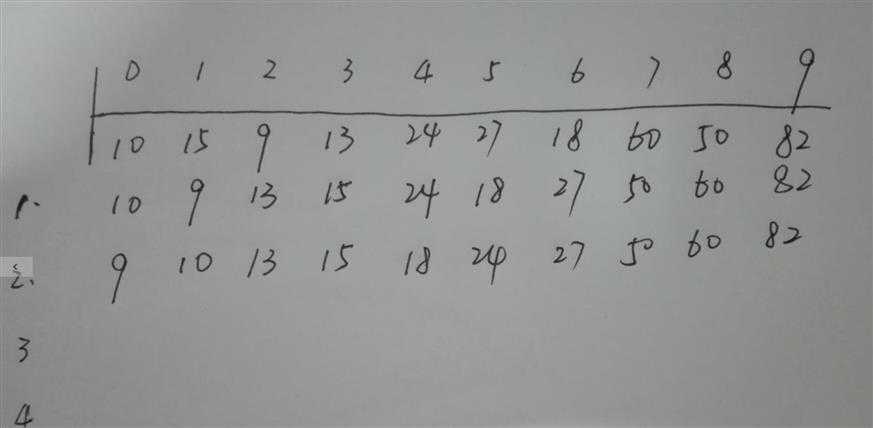 0 1 2 3 4 5 6 7 8 9
10 15 9 13 24 27 18 60 50 82
1. 10 9 13 15 24 18 27 50 60 82
2. 9 10 13 15 18 24 27 50 60 82
3
4